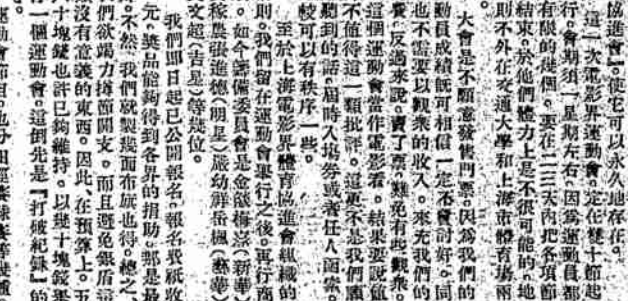 協進會』使它可以永久地存在。
這一次電影界運動會，定在雙十節起
行。會期須一星期左右。因爲運動員都
有限的幾個。要在二三天內把各項節
結束。於他們體力上是不很可能的。地
則不外在交通大學和上海市體育場兩
大會是不願意發售門票。因爲我們的
動員成績旣可相信一定不會討好。同
也不需要以觀衆的收入。來充我們的
費。反過來說。賣了票。難免有些觀衆。
這個運動會當作電影看。結果要說値
不値得這一類批評。這更不是我們
到的話。屆時入塲券或者任人函索。
較可以有秩序一些。
至於上海電影界體育協進會組織的
則。我們留在運動會舉行之後。再行商
。如今籌備委員會是金燄梅熹（新華）
稼農張進德（明星）嚴幼祥岳楓（藝華）
文超（吉星）等幾位。
我們卽日起已公開報名。報名費祇收
元。獎品能夠得到各界的捐助。那是最
。不然。我們就製幾面布旗也得。總之。
們欲竭力撙節開支。而且避免銀盾這
沒有意義的東西。因此。在預算上。五
十塊錢也許已夠維持。以幾十塊錢舉
行一個運動會。這倒先是『打破紀錄』的
。